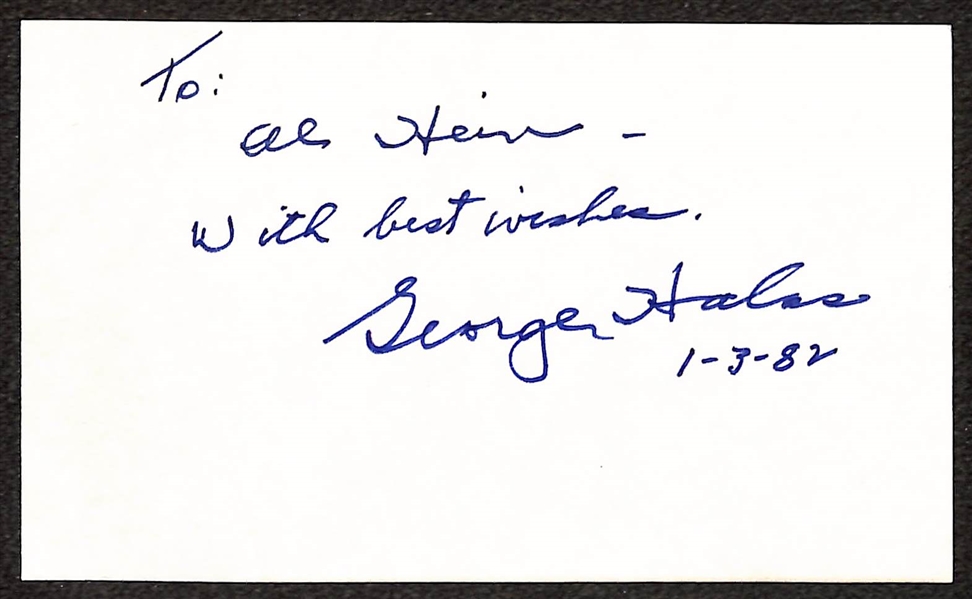 To:
Al Hein -
With best wishes.
George Halas
1-3-82